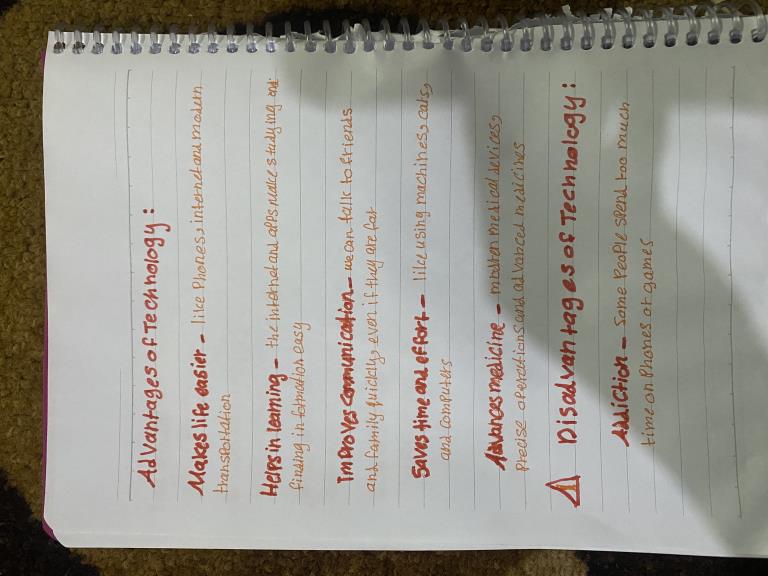 Advantages of Technology:
Makes life easier – like Phones, internet and modern
transportation
Helps in learning – the internet and apps make studying and
finding information easy
Improves communication – we can talk to friends
and family quickly, even if they are far
Saves time and effort – like using machines, cars,
and computers
Advances medicine – modern medical devices,
Precise operations and advanced medicines
⚠ Disadvantages of Technology:
Addiction – Some People spend too much
time on Phones or games